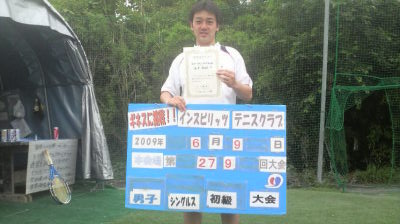 ギネスに挑戦!! インスピリッツ テニスクラブ
2009年 6月 9日
本会場 第 279 回大会
男子 シングルス 初級 大会